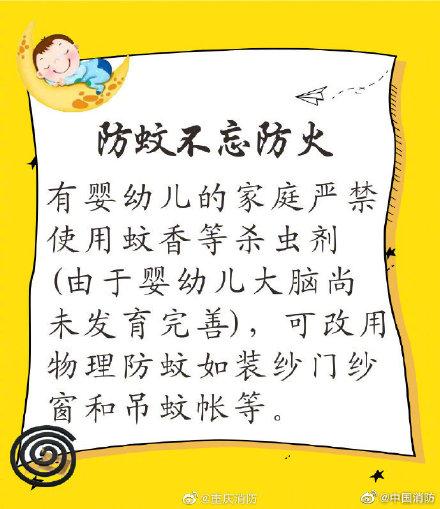 防蚊不忘防火
有婴幼儿的家庭严禁
使用蚊香等杀虫剂
(由于婴幼儿大脑尚
未发育完善)，可改用
物理防蚊如装纱门纱
窗和吊蚊帐等。
@重庆消防
@中国消防